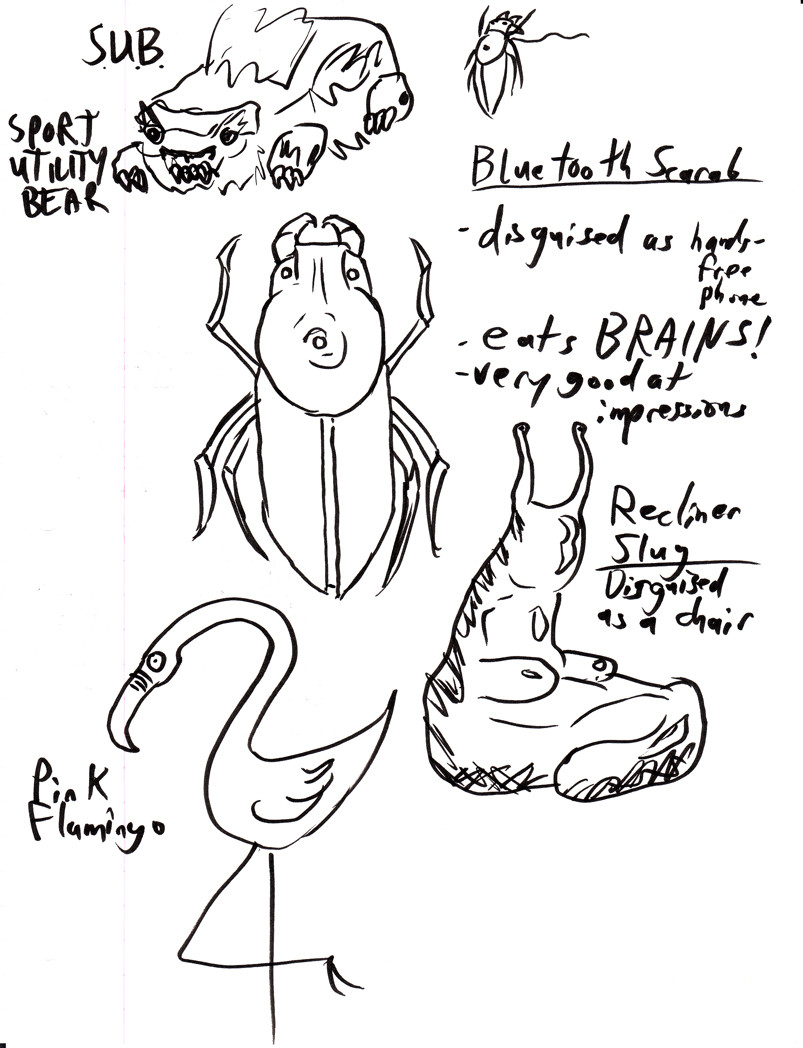 S.U.B.
SPORT
UTILITY
BEAR
Bluetooth Scarab
- disguised as hands-
free
phone
- eats BRAINS!
- very good at
impressions
Recliner
Slug
Disguised
as a chair
Pink
Flamingo